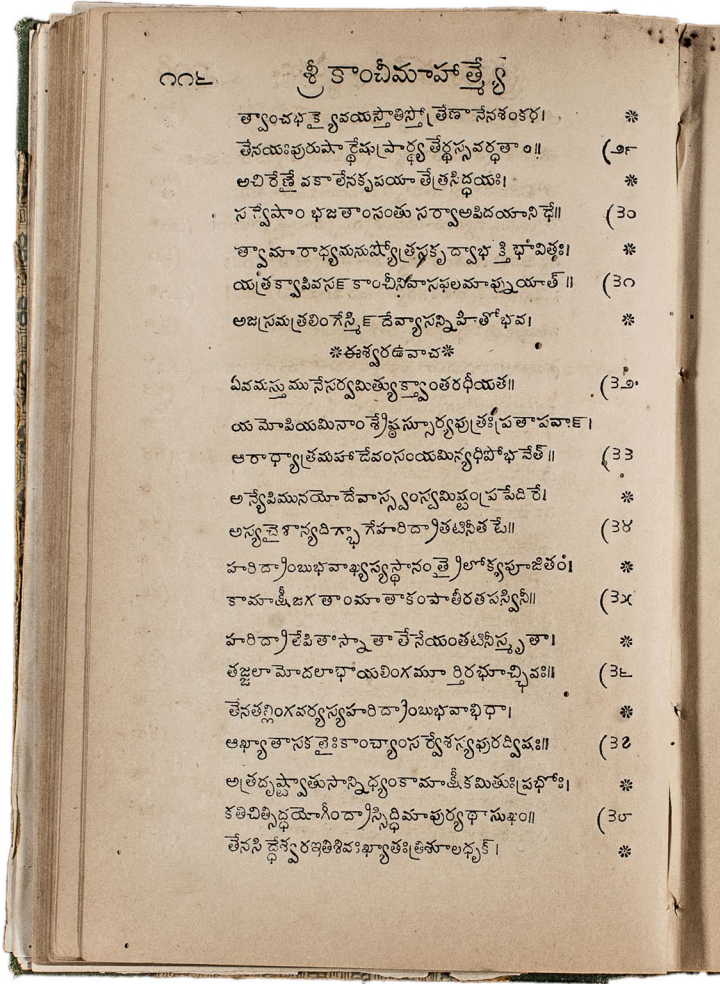 ౧౧౬ శ్రీ కాంచీమాహాత్మ్యే
త్వాంచభక్త్యైవయస్తౌతిస్తోత్రేణానేనశంకర। *
తేనయఃపురుషార్థేషుప్రార్థ్యతేర్థస్సవర్ధతాం॥ (౨౯
అచిరేణైవకాలేనకృపయాతేత్రసిద్ధయః। *
సర్వేషాం భజతాంసంతు సర్వాఅపిదయానిధే॥ (౩౦
త్వామారాధ్యమనుష్యోత్రసకృద్వాభక్తిభావితః। *
యత్రక్వాపివసౝ కాంచీనివాసఫలమాప్నుయాత్॥ (౩౧
అజస్రమత్రలింగేస్మిౝ దేవ్యాసన్నిహితోభవ। *
*ఈశ్వరఉవాచ*
ఏవమస్తుమునేసర్వమిత్యుక్త్వాంతరధీయత॥ (౩౨
యమోపియమినాం శ్రేష్ఠస్సూర్యపుత్రఃప్రతాపవాౝ।
ఆరాధ్యాత్రమహాదేవంసంయమిన్యధిపోభవేత్॥ (౩౩
అన్యేపిమునయోదేవాస్స్వంస్వమిష్టంప్రపేదిరే। *
అస్యచైశాన్యదిగ్భాగేహరిద్రాతటినీతటే॥ (౩౪
హరిద్రాంబుభవాఖ్యస్యస్థానంత్రైలోక్యపూజితం। *
కామాక్షీజగతాంమాతాకంపాతీరతపస్వినీ॥ (౩౫
హరిద్రాలేపితాస్నాతాతేనేయంతటినీస్మృతా। *
తజ్జలామోదలాభాయలింగమూర్తిరభూచ్ఛివః॥ (౩౬
తేనతల్లింగవర్యస్యహరిద్రాంబుభవాభిధా। *
ఆఖ్యాతాసకలైఃకాంచ్యాంసర్వేశస్యపురద్విషః॥ (౩౭
అత్రదృష్ట్వాతుసాన్నిధ్యంకామాక్షీకమితుఃప్రభోః। *
కతిచిత్సిద్ధయోగీంద్రాస్సిద్ధిమాపుర్యథాసుఖం॥ (౩౮
తేనసిద్ధేశ్వరఇతిశివఃఖ్యాతఃత్రిశూలధృక్। *